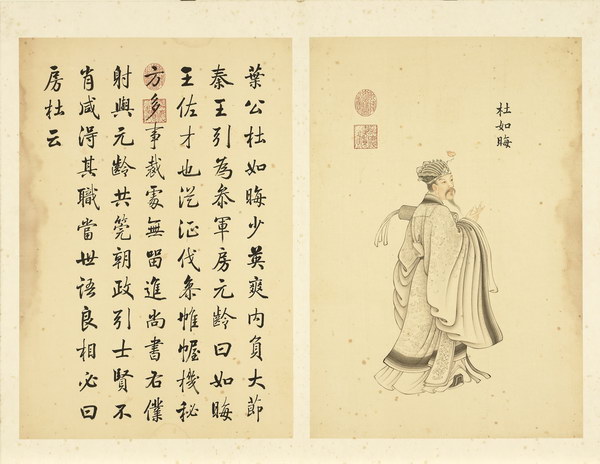 杜如晦
萊公杜如晦少英爽内負大節
秦王引為叅軍房元齡曰如晦
王佐才也從征伐叅帷幄機秘
方多事裁處無留進尚書右僕
射與元齡共筦朝政引士賢不
肖咸得其職當世語良相必曰
房杜云